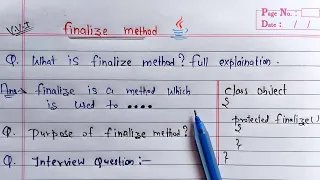 V.V.I
finalize method
Page No. :
Date : / /
Q. What is finalize method? full explaination.
Ans:→ finalize is a method which
is used to ••••
Q. Purpose of finalize method?
Q. Interview Question:-
class Object
{
protected finalize()
{
}
}